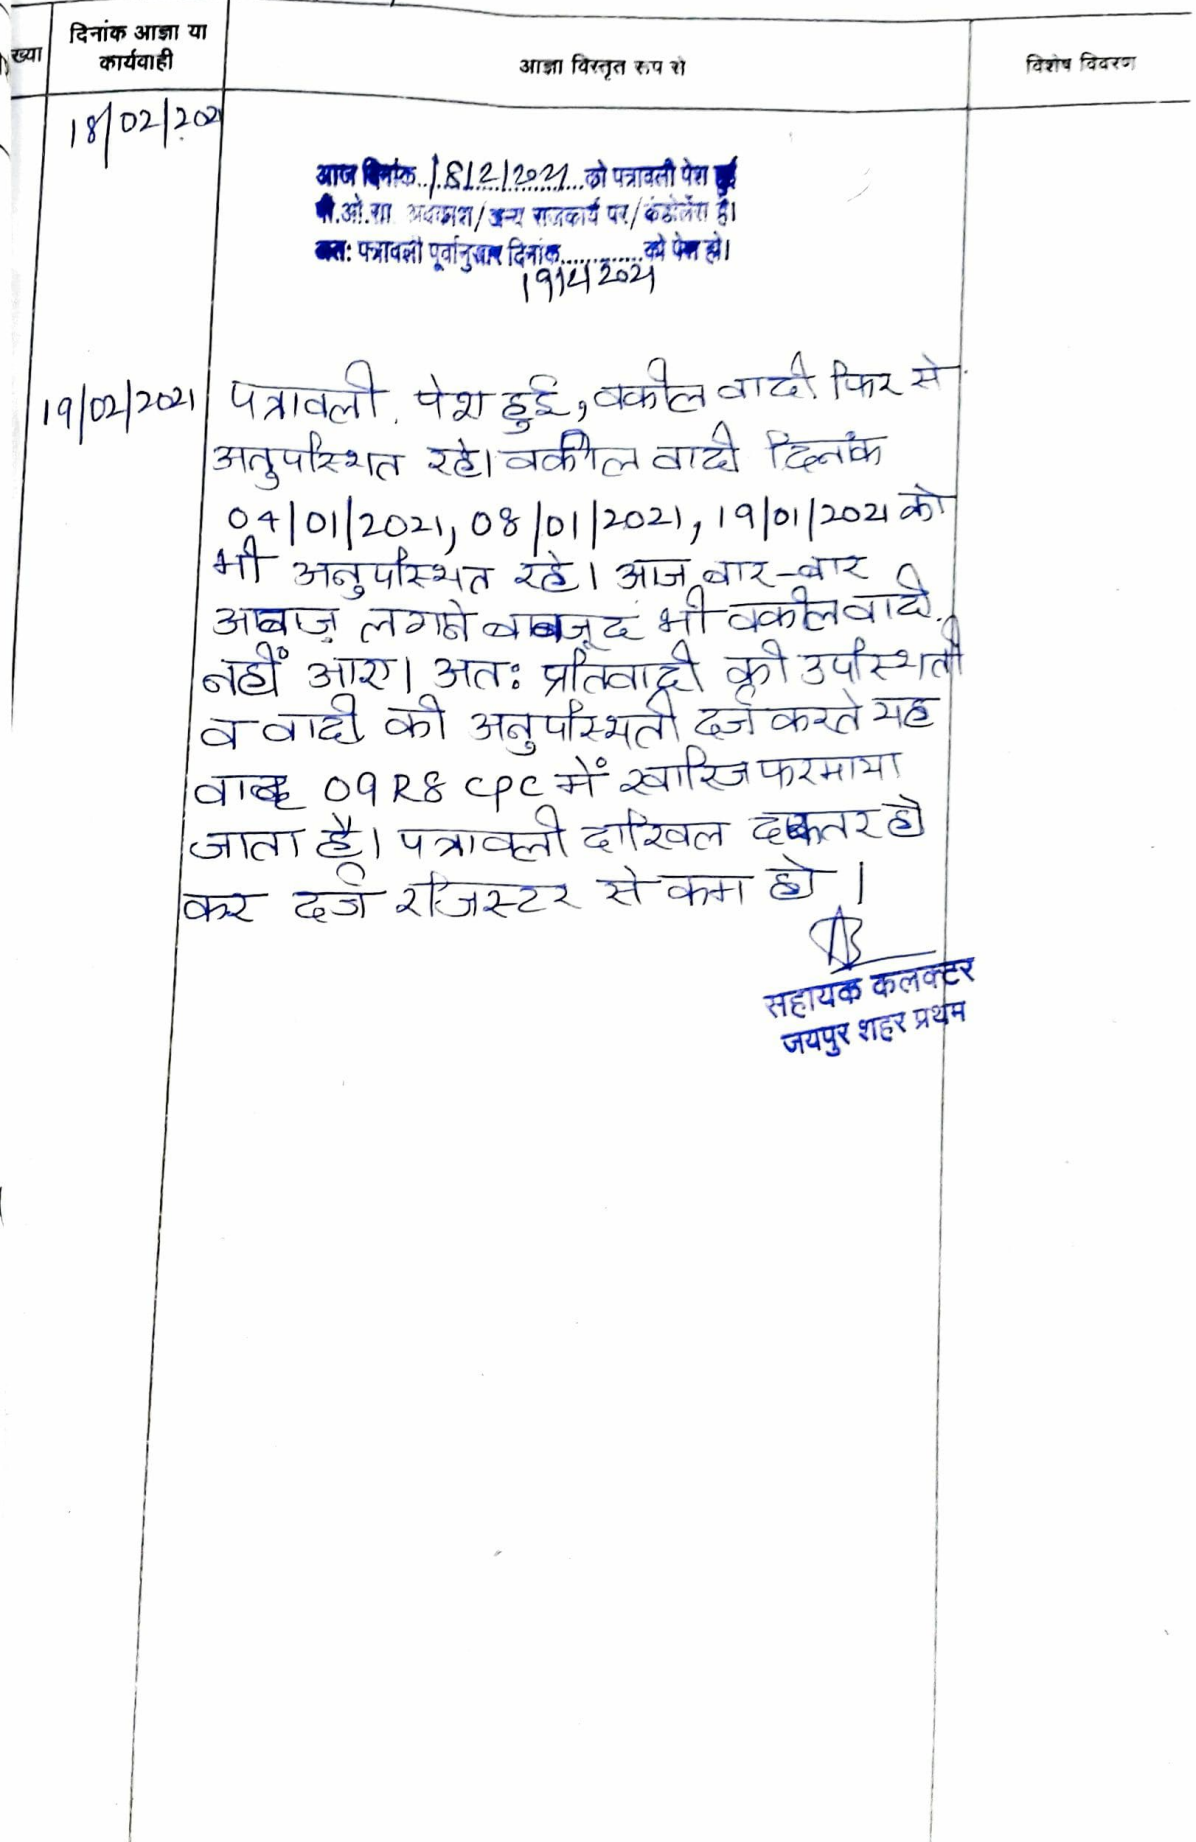 ख्या
दिनांक आज्ञा या
कार्यवाही
आज्ञा विस्तृत रूप से
विशेष विवरण
18/02/202
आज दिनांक..18/2/2021...को पत्रावली पेश हुई
पी.ओ.सा. अवकाश/अन्य राजकार्य पर/कंडोलेंस है।
अत: पत्रावली पूर्वानुसार दिनांक.............को पेश हो।
19/2/2021
19/02/2021
पत्रावली पेश हुई, वकील वादी फिर से
अनुपस्थित रहे। वकील वादी दिनांक
04/01/2021, 08/01/2021, 19/01/2021 को
भी अनुपस्थित रहे। आज बार-बार
आवाज़ लगाने बाबजूद भी वकील वादी
नहीं आए। अत: प्रतिवादी की उपस्थिती
व वादी की अनुपस्थिती दर्ज करते यह
वाद 09 R8 CPC में खारिज फरमाया
जाता है। पत्रावली दाखिल दफ्तर हो
कर दर्ज रजिस्टर से कम हो।
सहायक कलक्टर
जयपुर शहर प्रथम